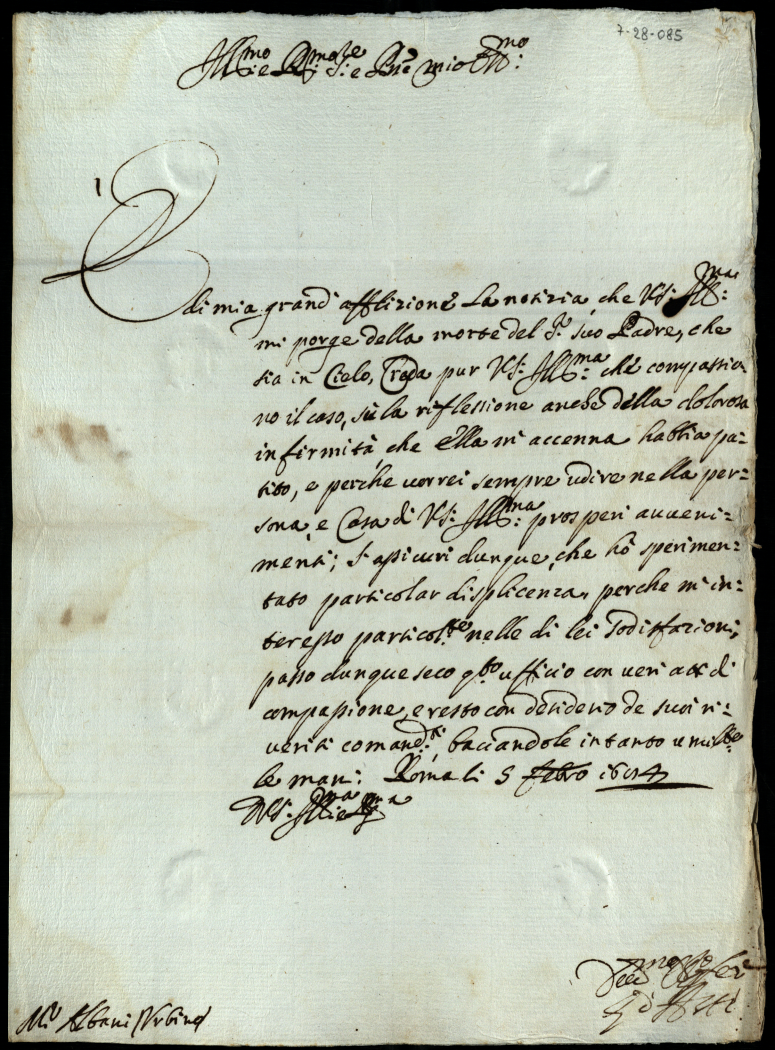 7-28-085
Ill.mo e R.mo Sig.e e P.ne mio Col.mo
È di mia grand'afflizione la notizia, che VS: Ill:ma
mi porge della morte del S.r suo Padre, che
sia in Cielo, Creda pur VS: Ill:ma che compassio
no il caso, sù la riflessione anche della dolorosa
infirmità, che ella mi accenna habbia pa=
tito, e perche vorrei sempre udire nella per=
sona, e Casa di VS: Ill:ma prosperi avveni=
menti; S'assicuri dunque, che hò sperimen=
tato particolar displicenza, perche m'in=
teresso particol.te nelle di lei sodisfazioni,
passo dunque seco q.to ufficio con veri atti di
compassione, e resto con desiderio de suoi ri=
veriti comand.ti, baciandole intanto umilte
le mani. Roma li 5 febro 1684
D VS: Ill:ma e R.ma
M.r Albani Urbino